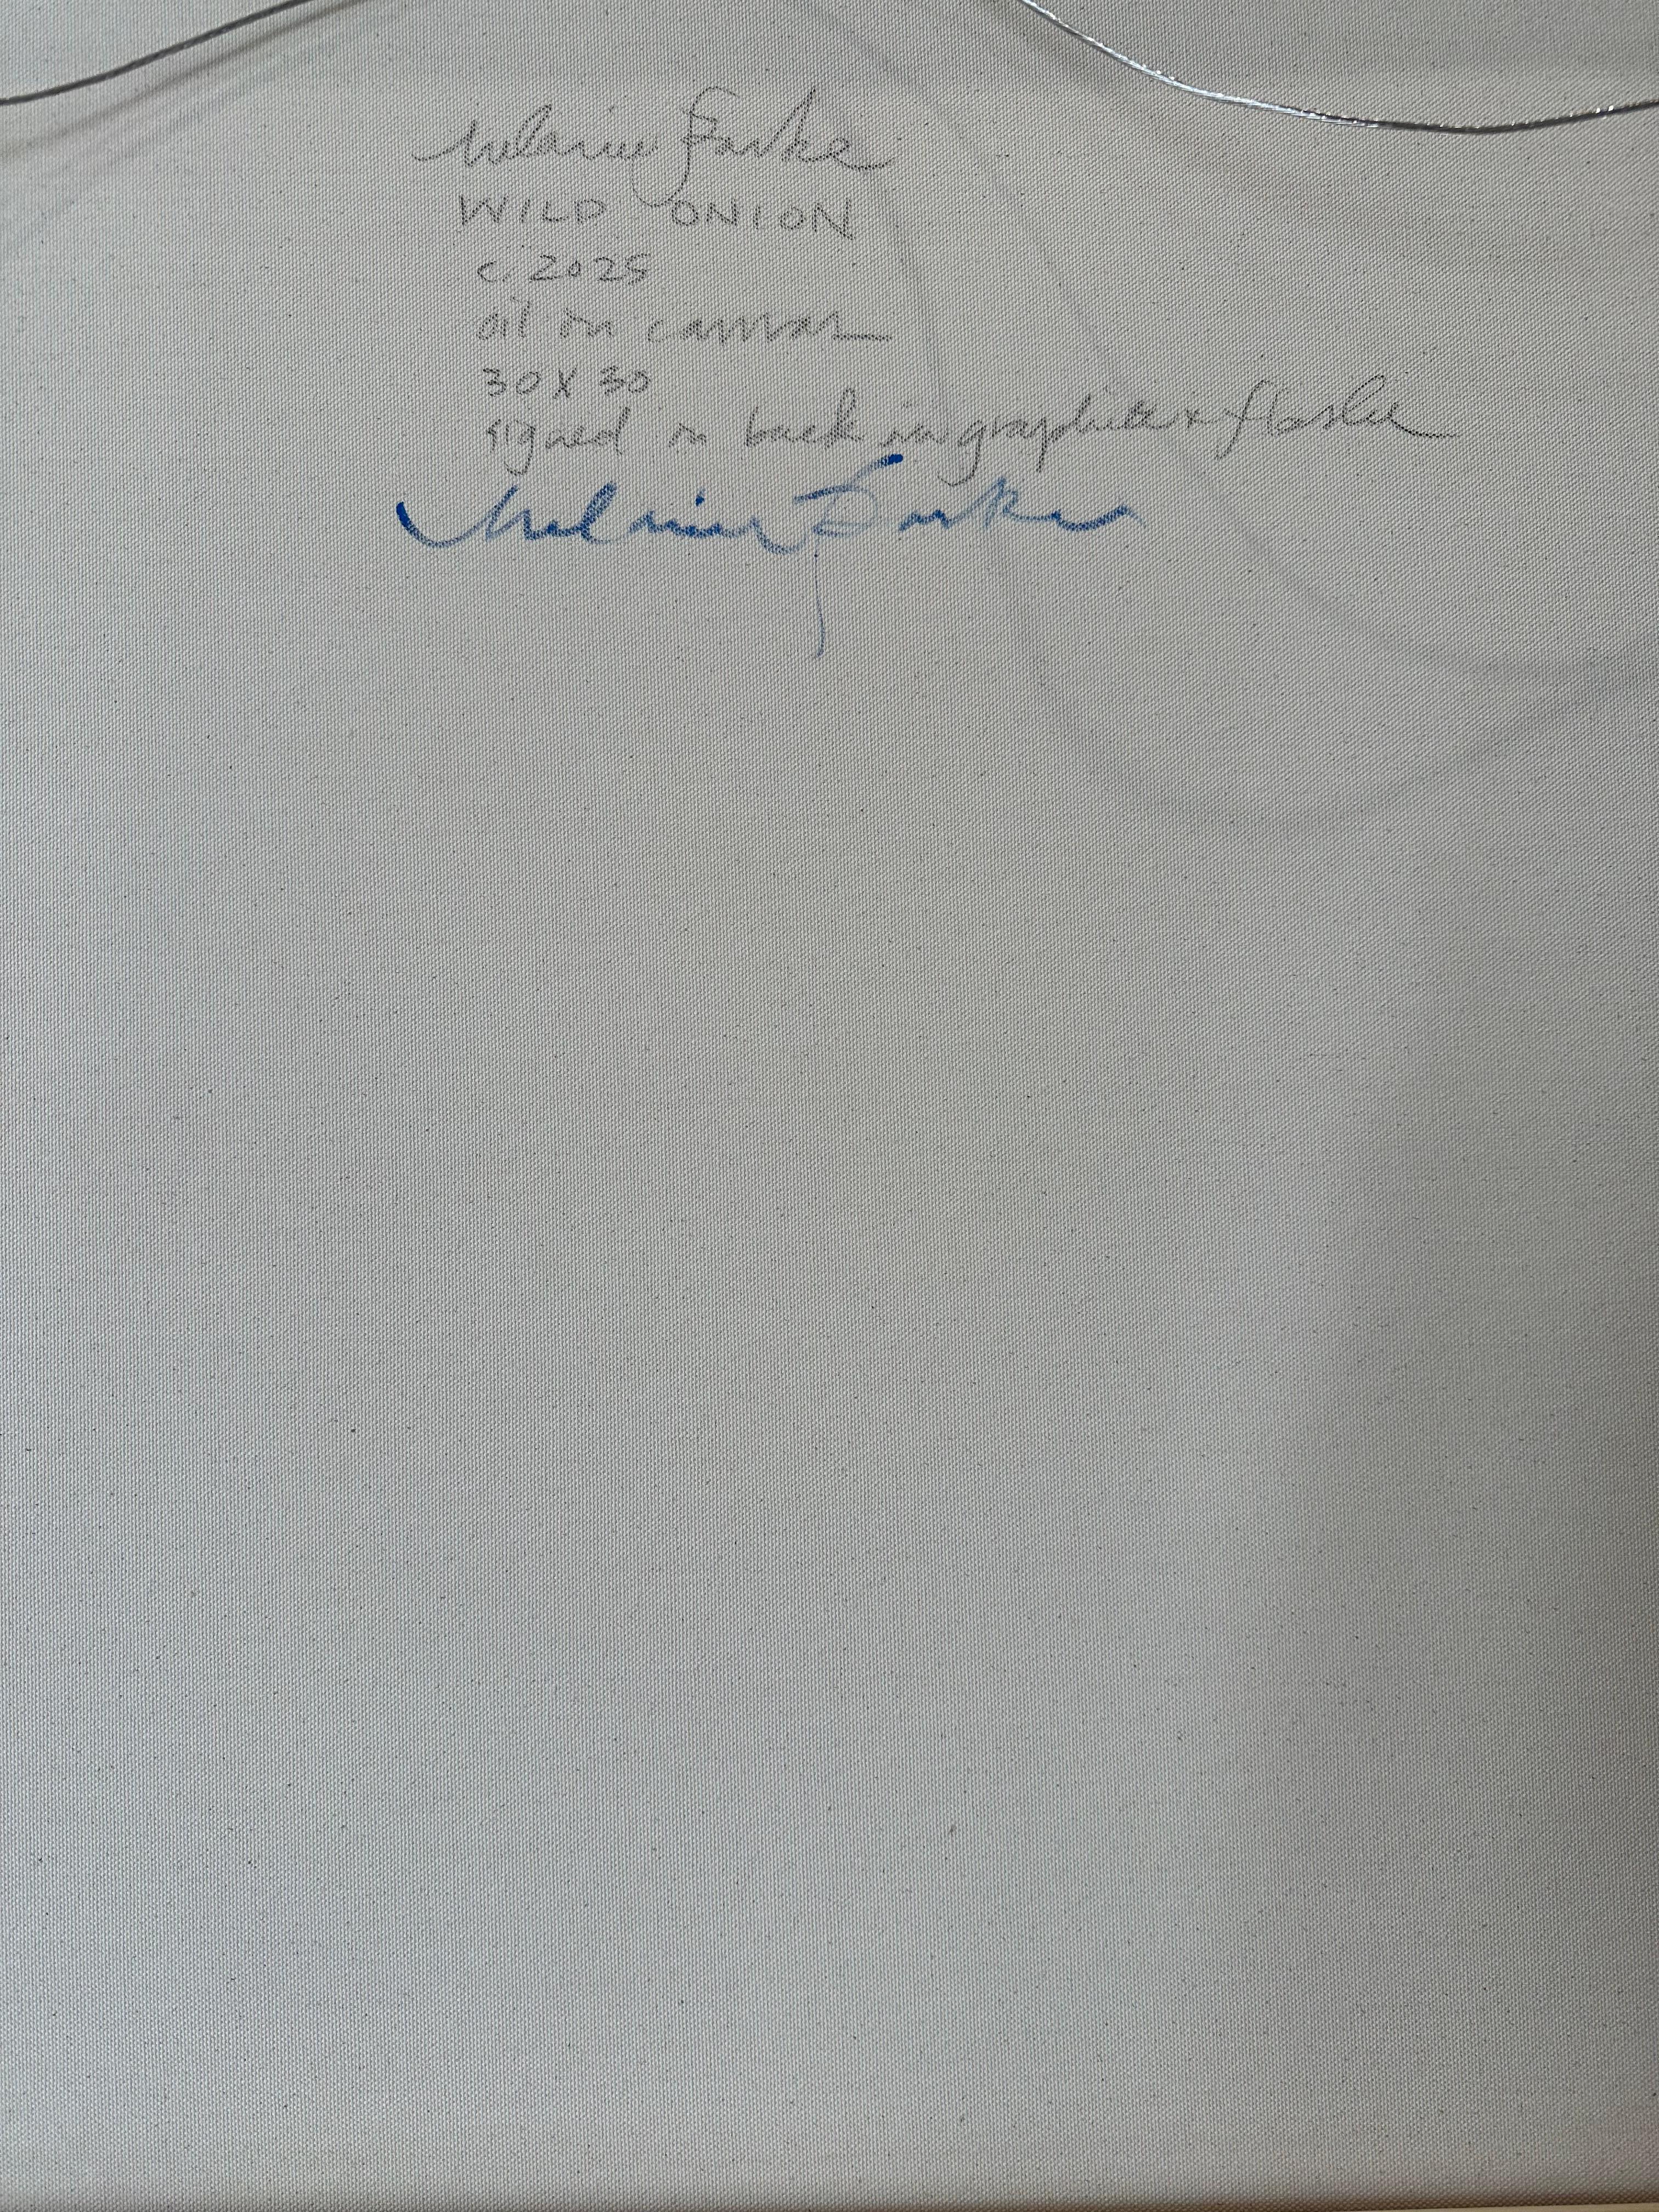 Melanie Parke
WILD ONION
c. 2025
oil on canvas
30 X 30
signed on back in graphite + flashe
Melanie Parke